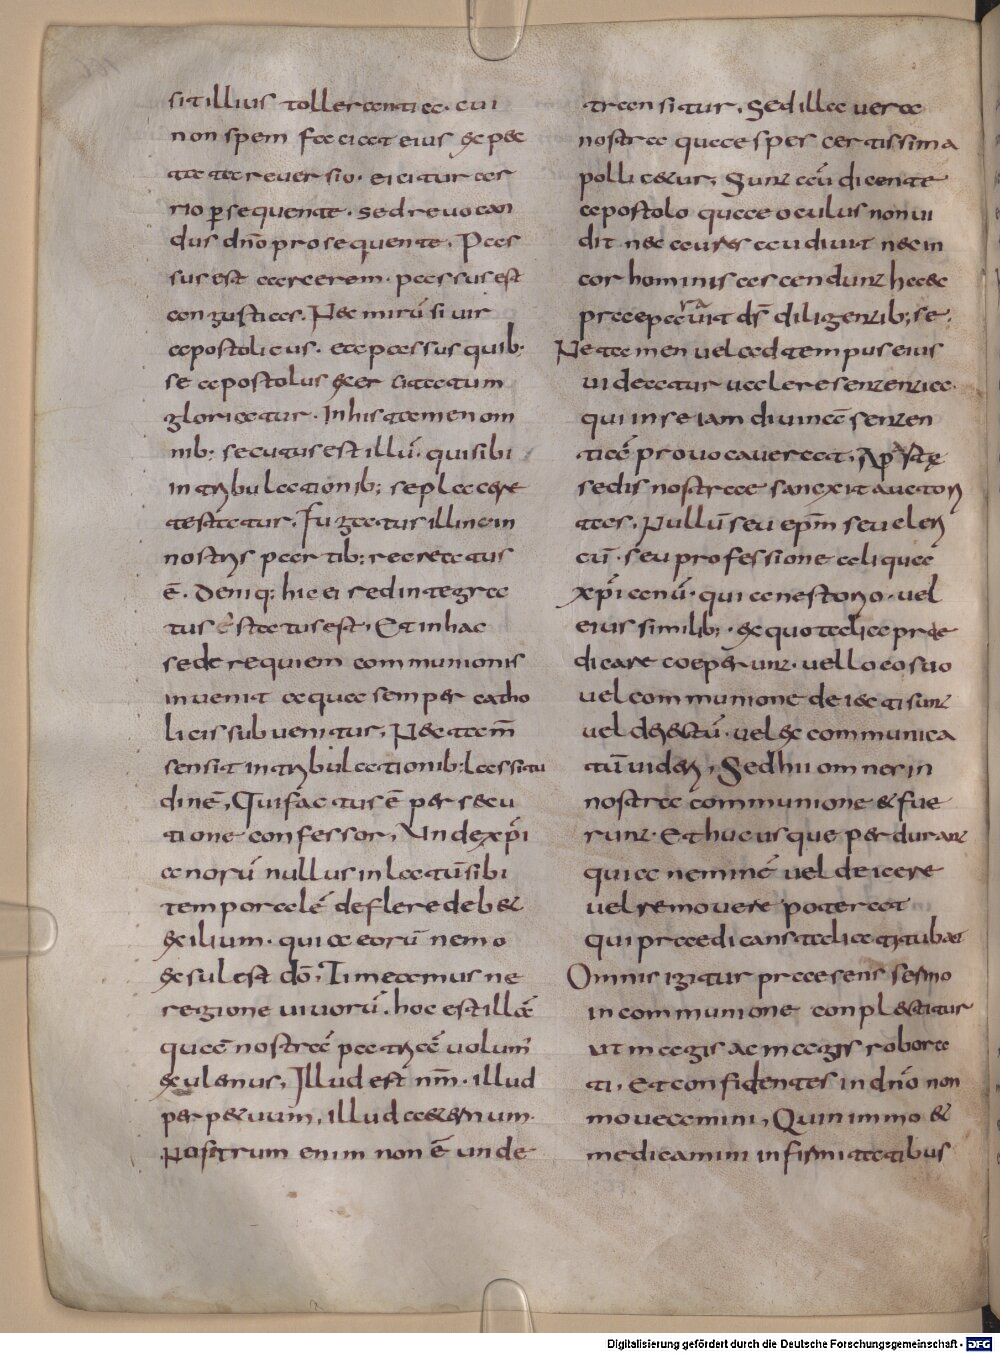 sit illius tollerantia. cui
non spem faciat eius expec
tata reversio. eicitur ces
rio p̄sequente. sed revocan
dus dn̄o prosequente. Pas
sus est carcerem. passus est
angustias. Nec mirū si vir
apostolicus. ea passus quib;
se apostolus exercitatum
gloriatur. In his tamen om
nib; secutus est illū. qui sibi
in tribulationib; se placere
testatur. Fugatus illinc in
nostris partib; recreatus
ē. Deniq; hic ei redintegra
tus ē status est. Et in hac
sede requiem communionis
invenit a qua semper catho
licis subvenitur. Nec tam̄
sensit in tribulationib; lassitu
dinē. Qui factus ē persecu
tione confessor. Unde xp̄i
anorū nullus inlatū sibi
temporalē deflere deb&
exilium. quia eorū nemo
exsul est dō. Timeamus ne
regione vivorū. hoc est illā
quā nostrā patriā volum̄
exulemus. Illud est nr̄m. illud
perpetuum, illud aeternum.
Nostrum enim non ē unde
transitur. Sed illa vera
nostra quae spes certissima
pollicetur. Sunt aū dicente
apostolo quae oculus non vi
dit nec aures audivit nec in
cor hominis ascendunt haec
praeparavit ds̄ diligentib; se.
Ne tamen vel ad tempus eius
videatur valere sententia.
qui in se iam divinā senten
tiā provocaverat. Aperte
sedis nostrae sanxit auctori
tas. Nullū seu epm̄ seu cleri
cū. seu professione aliqua
xp̄ianū. qui a nestorio. vel
eius similib;. ex quo talia prae
dicare coeperunt. vel loco suo
vel communione deiecti sunt
vel deiectū. vel excommunica
tū videri. Sed hii omnes in
nostra communione & fue
runt. Et hucusque perdurant
quia neminē vel deicere
vel removere poterat
qui praedicans talia titubat
Omnis igitur praesens sermo
in communione conplectitur
ut magis ac magis robora
ti. Et confidentes in dn̄o non
moveamini. Quin immo &
medicamini infirmitatibus
Digitalisierung gefördert durch die Deutsche Forschungsgemeinschaft - DFG